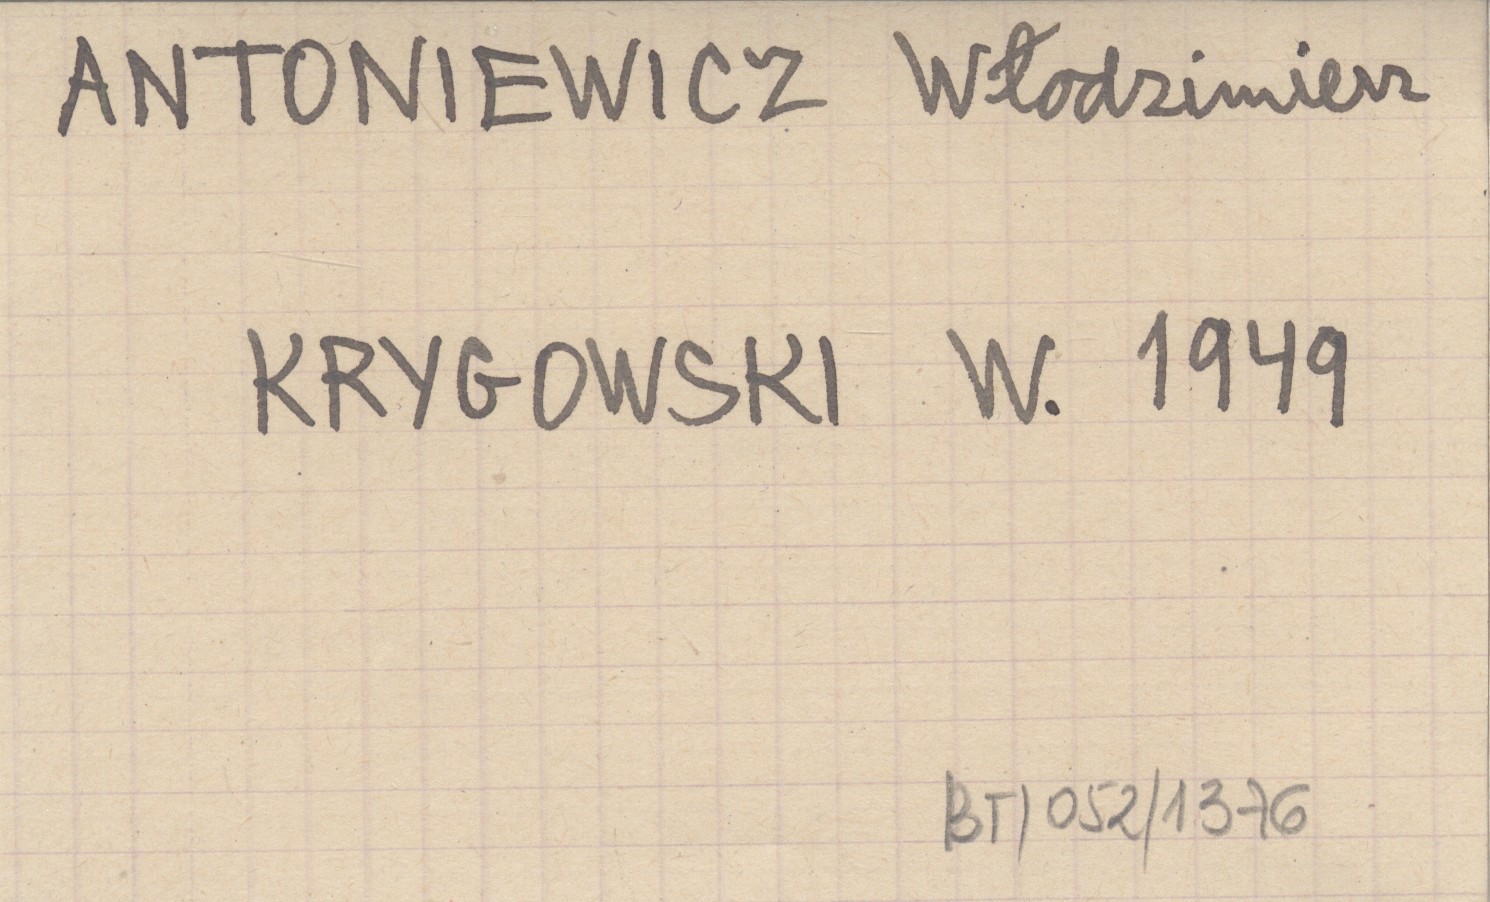 ANTONIEWICZ Włodzimierz
KRYGOWSKI W. 1949
BT/052/1376